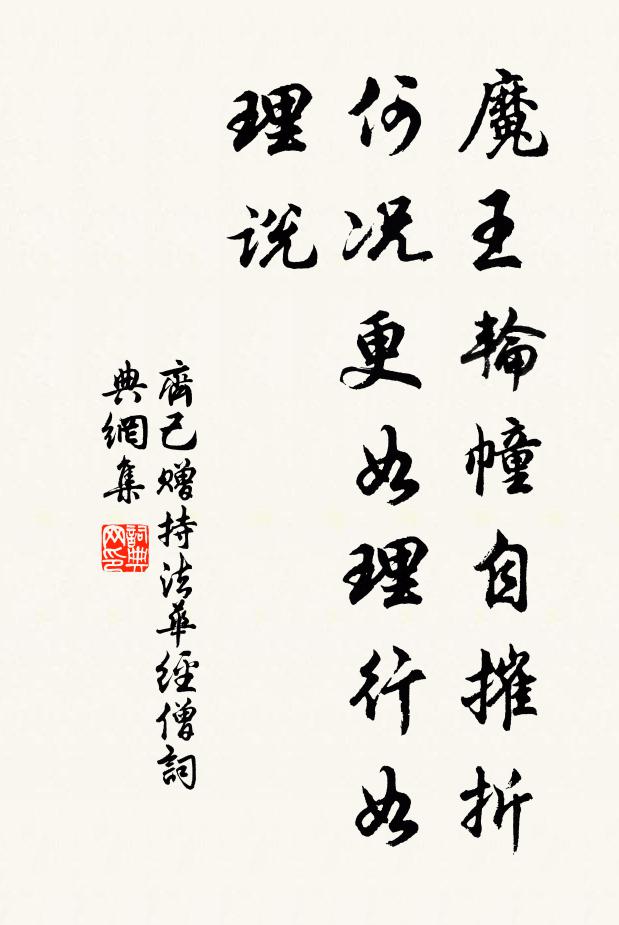 魔王輪幢自摧折
何况更如理行如
理説
齊己贈持法華經僧詞
典網集
詞典
网印